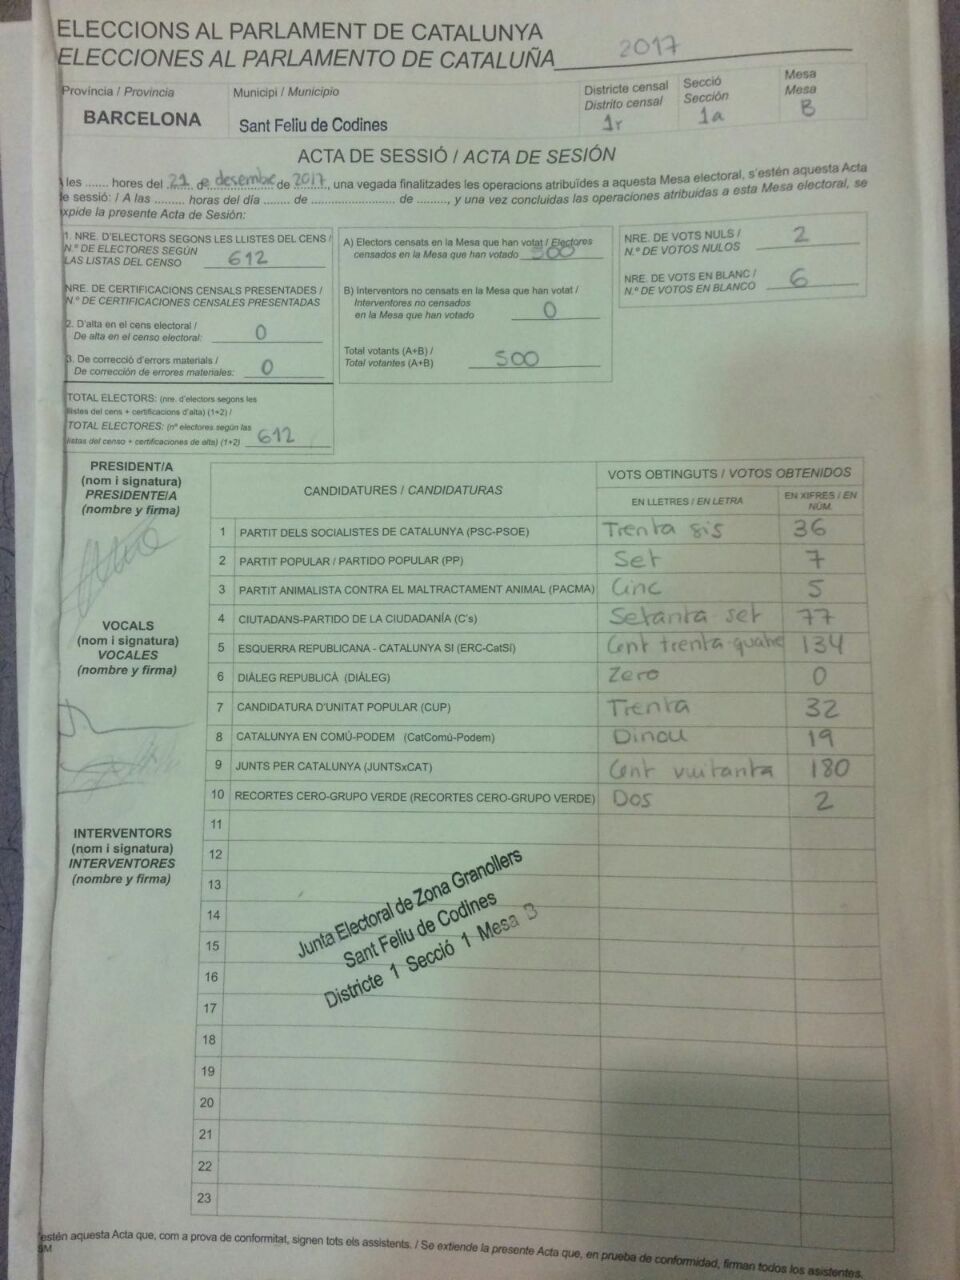 ELECCIONS AL PARLAMENT DE CATALUNYA
ELECCIONES AL PARLAMENTO DE CATALUÑA 2017
Província / Provincia
BARCELONA
Municipi / Municipio
Sant Feliu de Codines
Districte censal
Distrito censal
1r
Secció
Sección
1a
Mesa
Mesa
B
ACTA DE SESSIÓ / ACTA DE SESIÓN
A les ....... hores del 21 de desembre de 2017, una vegada finalitzades les operacions atribuïdes a aquesta Mesa electoral, s'estén aquesta Acta
de sessió: / A las ......... horas del día ........ de ........................ de ........., y una vez concluidas las operaciones atribuidas a esta Mesa electoral, se
expide la presente Acta de Sesión:
1. NRE. D'ELECTORS SEGONS LES LLISTES DEL CENS /
N.º DE ELECTORES SEGÚN
LAS LISTAS DEL CENSO 612
NRE. DE CERTIFICACIONS CENSALS PRESENTADES /
N.º DE CERTIFICACIONES CENSALES PRESENTADAS
2. D'alta en el cens electoral /
De alta en el censo electoral: 0
3. De correcció d'errors materials /
De corrección de errores materiales: 0
TOTAL ELECTORS: (nre. d'electors segons les
llistes del cens + certificacions d'alta) (1+2) /
TOTAL ELECTORES: (nº electores según las
listas del censo + certificaciones de alta) (1+2) 612
A) Electors censats en la Mesa que han votat / Electores
censados en la Mesa que han votado 500
B) Interventors no censats en la Mesa que han votat /
Interventores no censados
en la Mesa que han votado 0
Total votants (A+B) /
Total votantes (A+B) 500
NRE. DE VOTS NULS /
N.º DE VOTOS NULOS 2
NRE. DE VOTS EN BLANC /
N.º DE VOTOS EN BLANCO 6
PRESIDENT/A
(nom i signatura)
PRESIDENTE/A
(nombre y firma)
VOCALS
(nom i signatura)
VOCALES
(nombre y firma)
INTERVENTORS
(nom i signatura)
INTERVENTORES
(nombre y firma)
CANDIDATURES / CANDIDATURAS
VOTS OBTINGUTS / VOTOS OBTENIDOS
EN LLETRES / EN LETRA
EN XIFRES / EN
NÚM.
1 PARTIT DELS SOCIALISTES DE CATALUNYA (PSC-PSOE) Trenta sis 36
2 PARTIT POPULAR / PARTIDO POPULAR (PP) Set 7
3 PARTIT ANIMALISTA CONTRA EL MALTRACTAMENT ANIMAL (PACMA) Cinc 5
4 CIUTADANS-PARTIDO DE LA CIUDADANÍA (C's) Setanta-set 77
5 ESQUERRA REPUBLICANA - CATALUNYA SI (ERC-CatSí) Cent trenta-quatre 134
6 DIÀLEG REPUBLICÀ (DIÀLEG) Zero 0
7 CANDIDATURA D'UNITAT POPULAR (CUP) Trenta 32
8 CATALUNYA EN COMÚ-PODEM (CatComú-Podem) Dinou 19
9 JUNTS PER CATALUNYA (JUNTSxCAT) Cent vuitanta 180
10 RECORTES CERO-GRUPO VERDE (RECORTES CERO-GRUPO VERDE) Dos 2
11
12
13
14
15
16
17
18
19
20
21
22
23
Junta Electoral de Zona Granollers
Sant Feliu de Codines
Districte 1 Secció 1 Mesa B
'estén aquesta Acta que, com a prova de conformitat, signen tots els assistents. / Se extiende la presente Acta que, en prueba de conformidad, firman todos los asistentes.